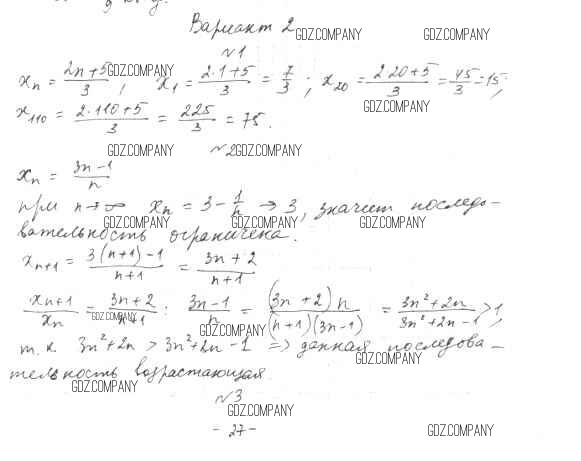 Вариант 2 GDZ.COMPANY GDZ.COMPANY
№1
xₙ = (2n+5)/3, GDZ.COMPANY x₁ = (2·1+5)/3 = 7/3; x₂₀ = (2·20+5)/3 = 45/3 = 15,
GDZ.COMPANY
x₁₁₀ = (2·110+5)/3 = 225/3 = 75.
GDZ.COMPANY №2 GDZ.COMPANY
xₙ = (3n-1)/n
при n→∞ xₙ = 3 - 1/n → 3, значит последо-
GDZ.COMPANY GDZ.COMPANY GDZ.COMPANY
вательность ограничена.
xₙ₊₁ = (3(n+1)-1)/(n+1) = (3n+2)/(n+1)
xₙ₊₁/xₙ = (3n+2)/(n+1) : (3n-1)/n = ((3n+2)n)/((n+1)(3n-1)) = (3n²+2n)/(3n²+2n-1) > 1,
GDZ.COMPANY GDZ.COMPANY
т.к. 3n²+2n > 3n²+2n-1 => данная последова-
GDZ.COMPANY
тельность возрастающая.
GDZ.COMPANY
№3
GDZ.COMPANY
- 27 -
GDZ.COMPANY